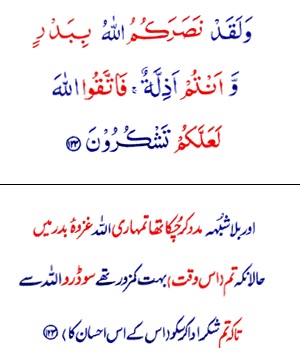 وَلَقَدْ نَصَرَكُمُ اللهُ بِبَدْرٍ
وَّ اَنْتُمْ اَذِلَّةٌ ۚ فَاتَّقُوا اللهَ
لَعَلَّكُمْ تَشْكُرُوْنَ ﴿۱۲۳﴾
اور بلا شُبَہ مدد کر چُکا تھا تمہاری اللہ غزوۂ بدر میں
حالانکہ تم (اس وقت) بہت کمزور تھے سو ڈرو اللہ سے
تاکہ تم شکر ادا کر سکو (اس کے اس احسان کا) ﴿۱۲۳﴾